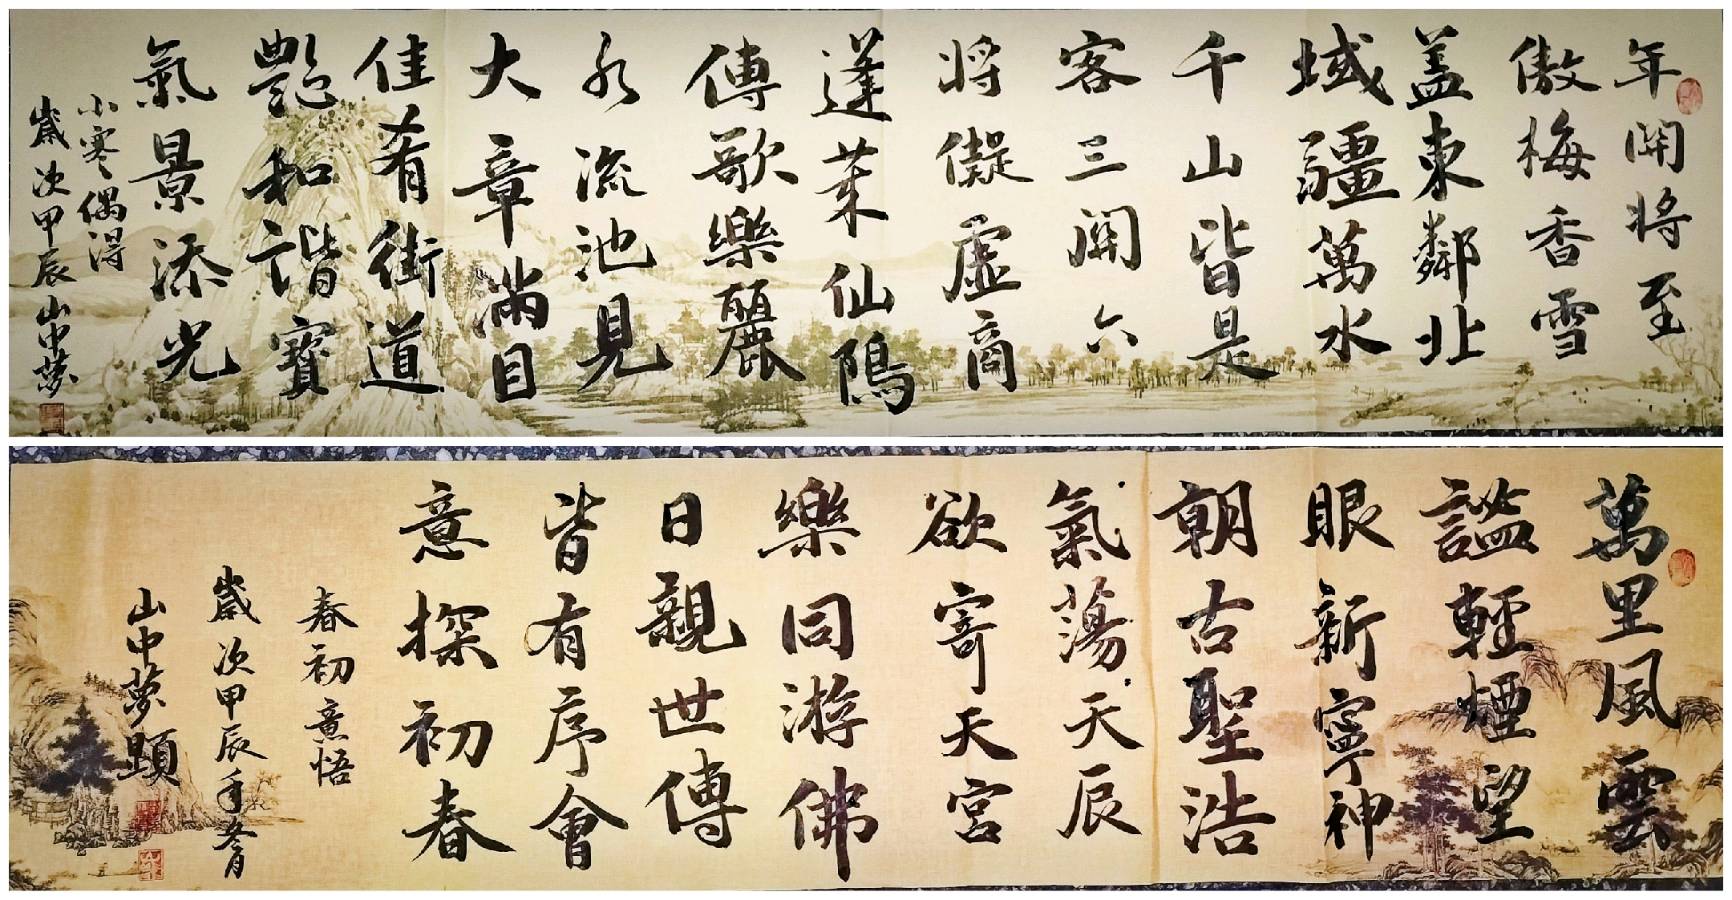 年開將至
傲梅香雪
盖東鄰北
域疆萬水
千山皆是
客三開六
將儗虛商
蓬莱仙隝
傳歌樂麗
水流池見
大章滿目
佳肴街道
艷和諧寶
氣景添光
小寒偶得
歲次甲辰山中夢
萬里風雲
謐輕煙望
眼新寧神
朝古聖浩
氣蕩天辰
欲寄天宮
樂同游佛
日親世傳
皆有序會
意探初春
春初意悟
歲次甲辰年冬月
山中夢題